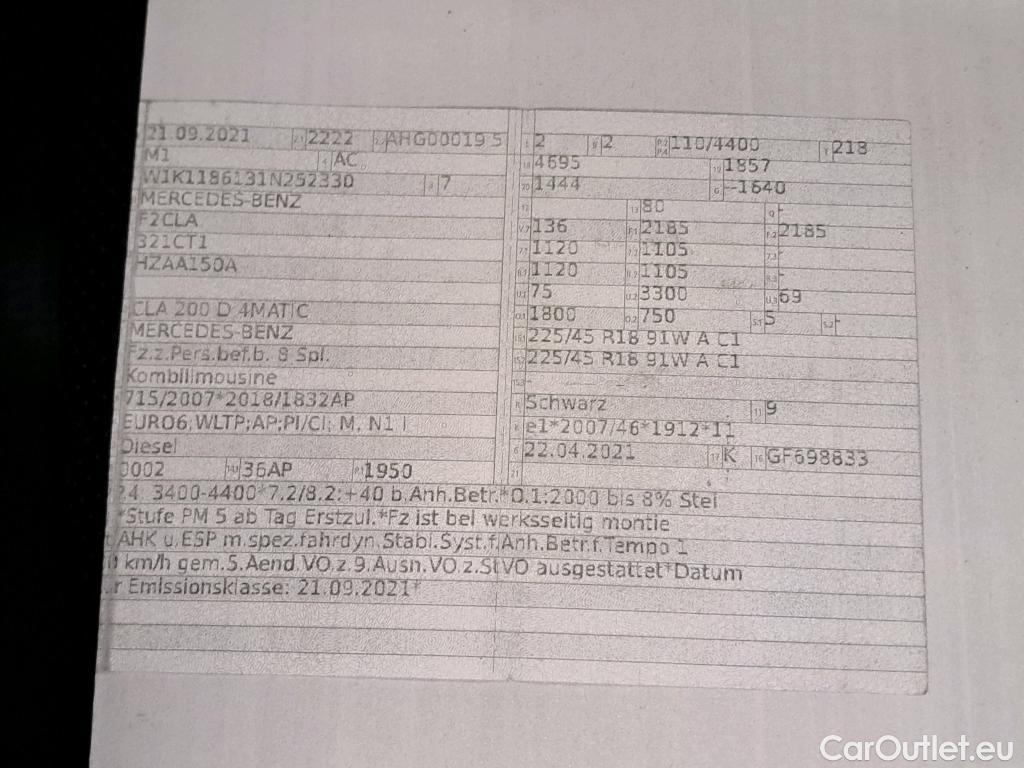 21.09.2021 2222 AHG00019 5
M1 AC
W1K1186131N252330 7
MERCEDES-BENZ
F2CLA
321CT1
HZAA150A
CLA 200 D 4MATIC
MERCEDES-BENZ
Fz.z.Pers.bef.b. 8 Spl.
Kombilimousine
715/2007*2018/1832AP
EURO6;WLTP;AP;PI/CI; M, N1 I
Diesel
0002 36AP 1950
2 2 110/4400 218
4695 1857
1444 --1640
80 -
136 2185 2185
1120 1105 -
1120 1105 -
75 3300 69
1800 750 5 -
225/45 R18 91W A C1
225/45 R18 91W A C1
-
Schwarz 9
e1*2007/46*1912*11
22.04.2021 K GF698833
2.4: 3400-4400*7.2/8.2:+40 b.Anh.Betr.*O.1:2000 bis 8% Stei
*Stufe PM 5 ab Tag Erstzul.*Fz ist bei werksseitig montie
AHK u.ESP m.spez.fahrdyn.Stabi.Syst.f.Anh.Betr.f.Tempo 1
km/h gem.5.Aend.VO.z.9.Ausn.VO.z.StVO ausgestattet*Datum
r Emissionsklasse: 21.09.2021*
CarOutlet.eu